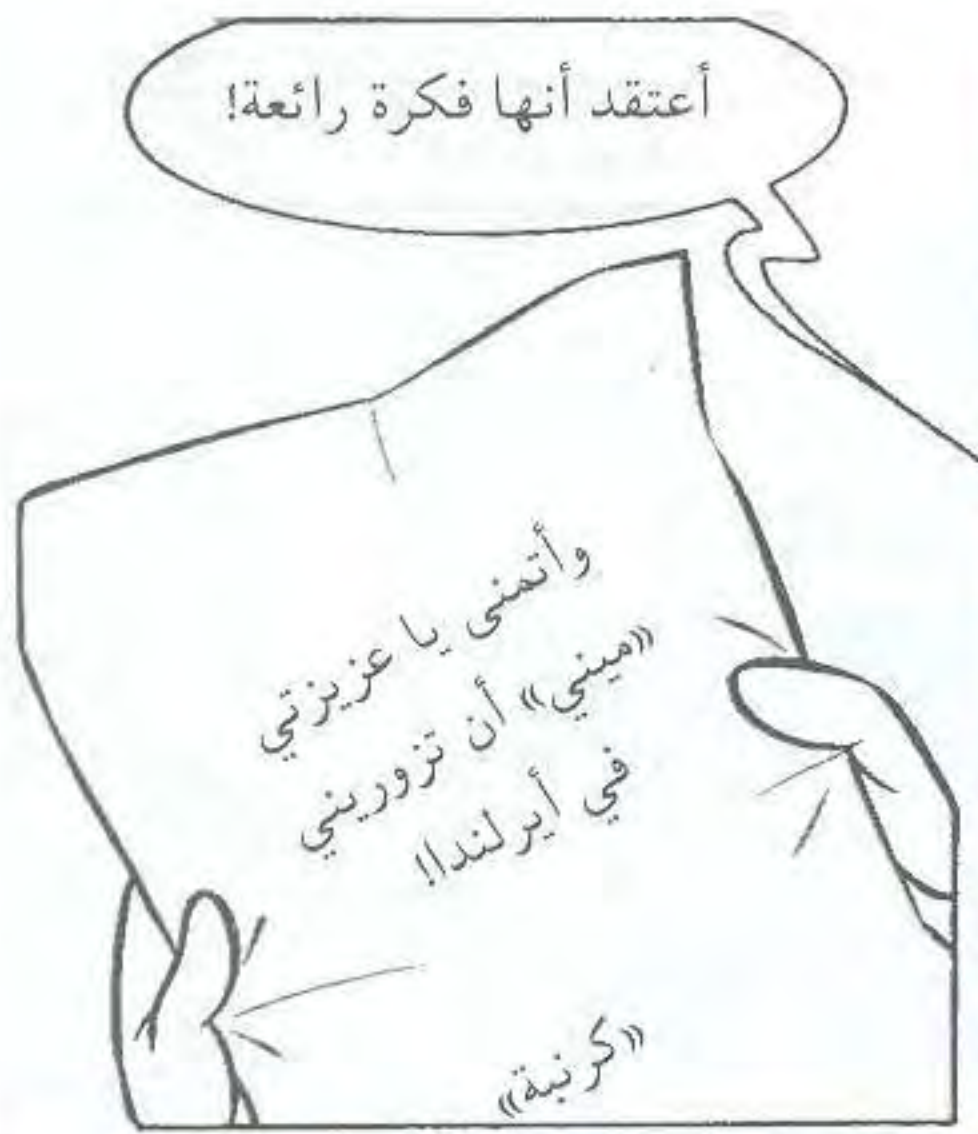 أعتقد أنها فكرة رائعة!
وأتمنى يا عزيزتي
«ميني» أن تزوريني
في أيرلندا!
«كرنبة»